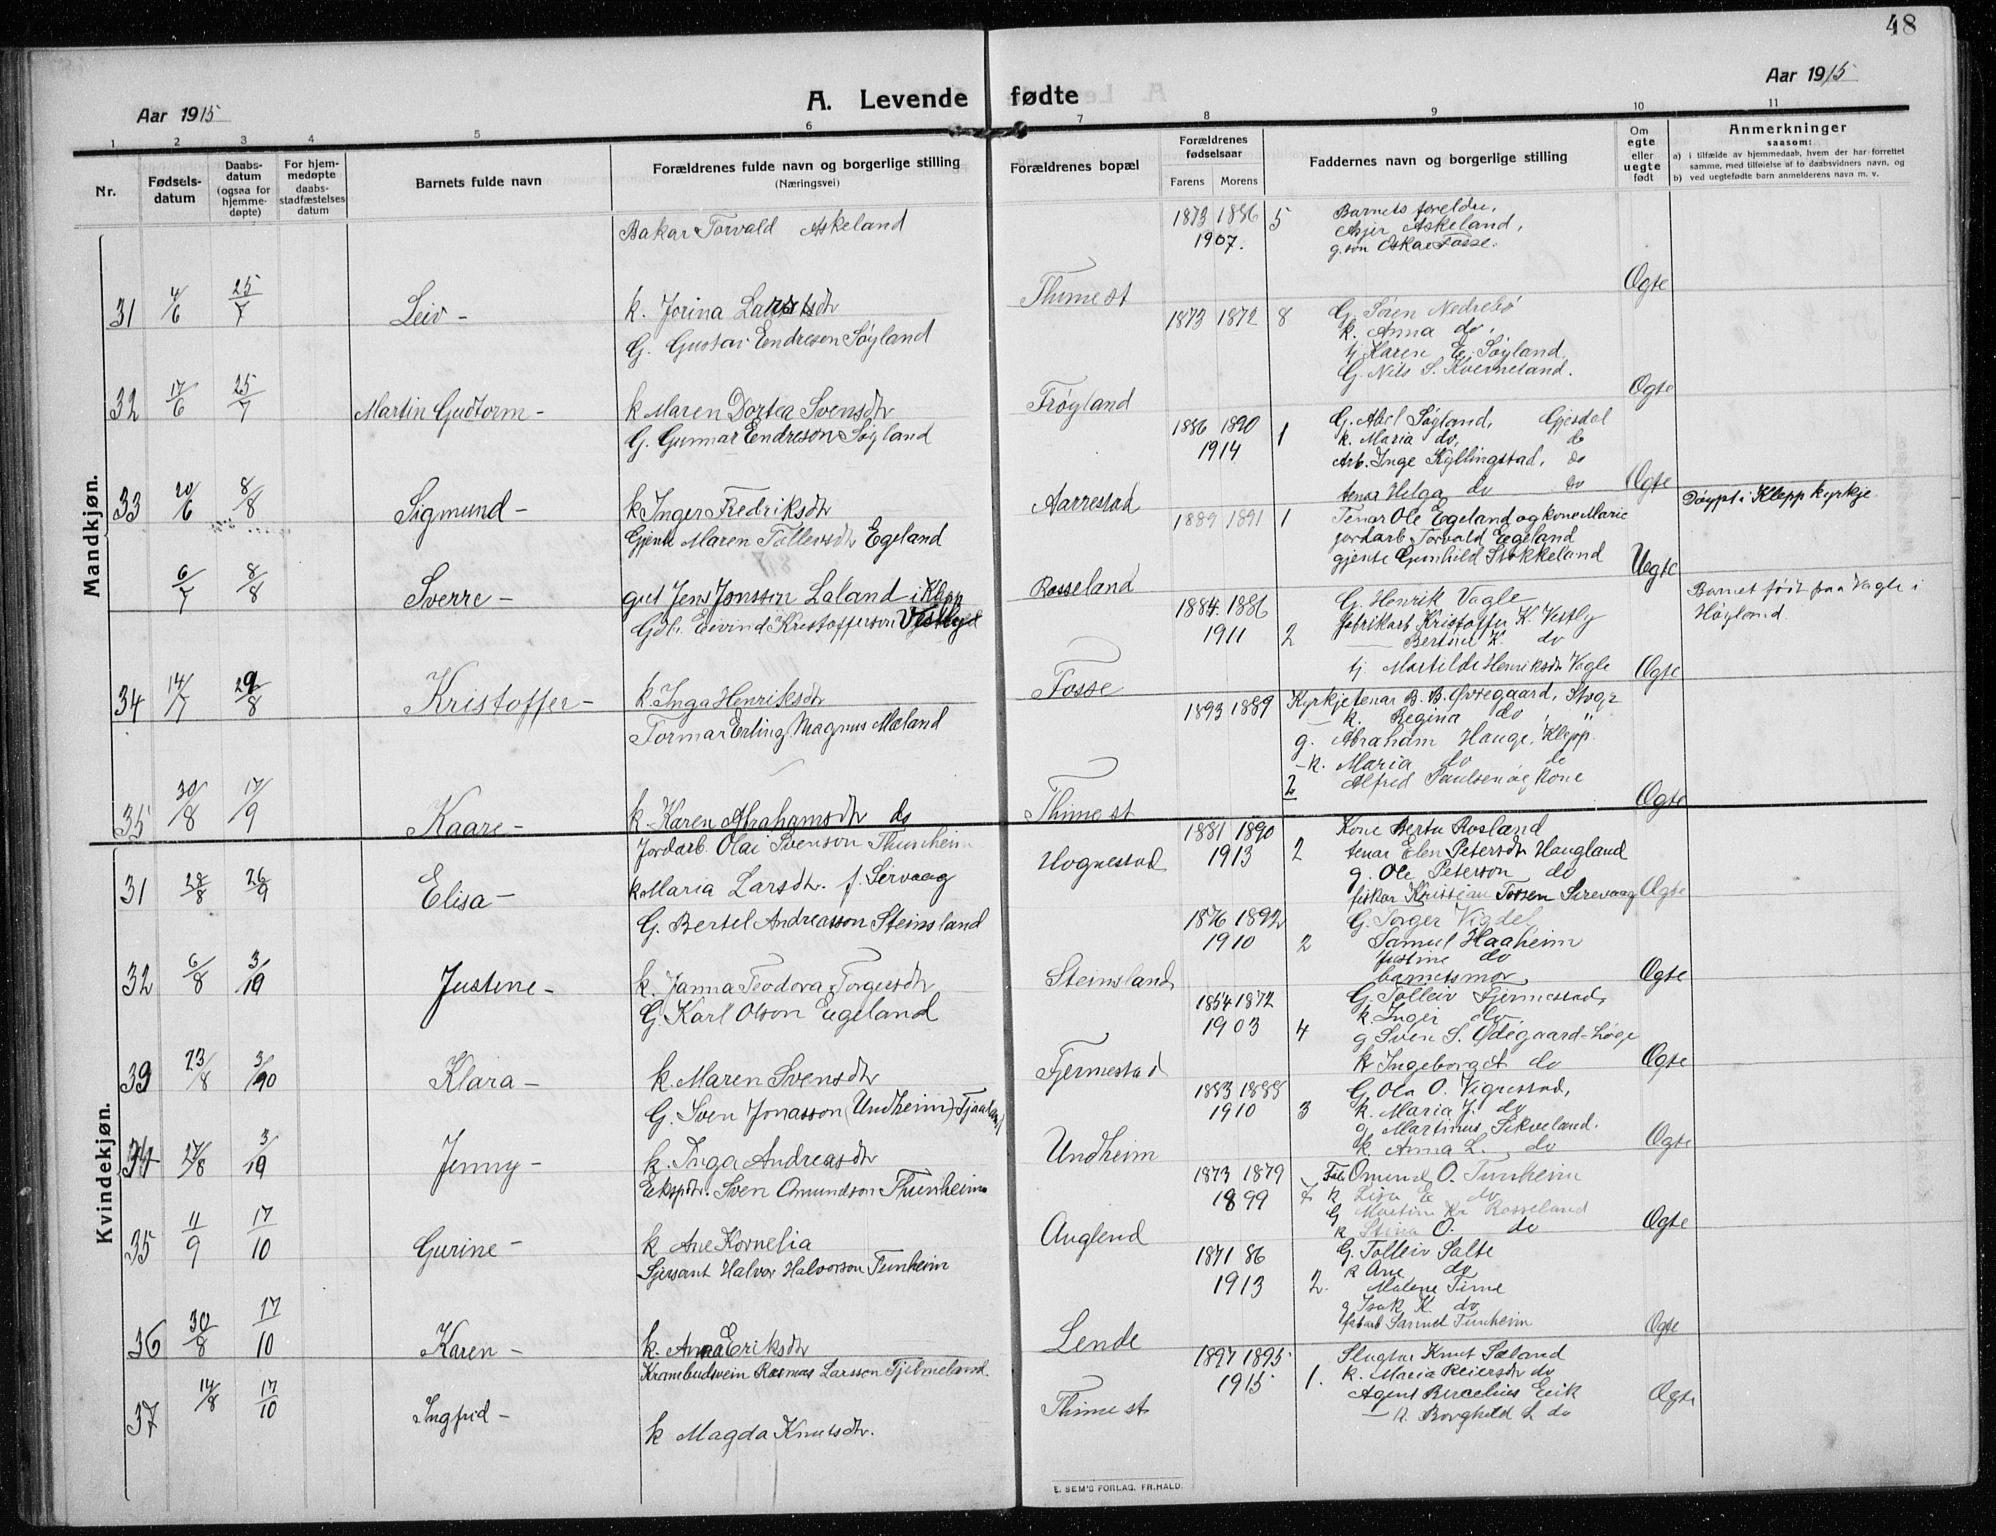 48
Aar 1915
A. Levende fødte
Aar 1915
1 2 3 4 5 6 7 8 9 10 11
Nr.
Fødselsdatum
Daabsdatum (ogsaa for hjemmedøpte)
For hjemmedøpte daabsstadfæstelses datum
Barnets fulde navn
Forældrenes fulde navn og borgerlige stilling
(Næringsvei)
Forældrenes bopæl
Forældrenes fødselsaar
Farens Morens
Faddernes navn og borgerlige stilling
Om egte eller uegte født
Anmerkninger
saasom:
a) i tilfælde av hjemmedaab, hvem der har forrettet
samme, med tilføielse af to daabsvidners navn, og
b) ved uegtefødte barn anmelderens navn m. v.
Mandkjøn.
Bakar Torvald Askeland
1873 1886 5
1907.
Barnets foreldre,
Asjer Askeland,
g. son Oskar Fosse.
31 4/6 25/7 Leiv -
k. Jorina
Thime st
Ogte
G. Gustav Endreson Søyland
1873 1872 8
G. Søren Nedrebø
k. Anna do.
tj Karen E. Søyland
G. Nils S. Kverneland.
32 17/6 25/7 Martin Gudtorm -
k Maren Dortea Svensdtr
Frøyland
Ogte
G. Gunnar Endreson Søyland
1886 1890 1
1914
G. Abel Søyland, Gjesdal
k. Maria do, do
Arb. Inge Kyllingstad, do
tenar Helga do do
33 20/6 8/8 Sigmund -
k Inger Fredriksdtr
Aarrestad
Ogte
Døypt i Klepp kyrkje
Gjente Maren Tollevsdtr Egeland
1889 1891 1
Tenar Ole Egeland og kone Marie
jordarb Torvald Egeland
gjente Gunhild Stokkeland
6/7 8/8 Sverre -
gut Jens Jonsson Laland i Klepp
Rosseland
Uegte
Barnet født paa Vagle i
Høyland.
Gdb. Eivind Kristofferson
1884 1886
1911 2
G. Henrik Vagle
fabrikarb Kristoffer K. Vestly
Bertine K. do
tj. Martilde Henriksdtr Vagle
34 14/7 29/8 Kristoffer -
k Inga Henriksdtr
Fosse
Ogte
Tormar Erling Magnus Mæland
1893 1889
Kyrkjetenar B. B. Øvregaard,
k. Regina do "
g. Abraham Hauge, Klepp.
- k. Maria do do
2 Alfred Paulsen og kone
35 30/8 17/9 Kaare -
k. Karen Abrahamsdtr do
Thime st
Ogte
Kvindekjøn.
Jordarb. Olai Svenson Thunheim
1881 1890
1913 2
Kone Berta Rosland
tenar Elen Petersdtr Haugland
g. Ole Peterson do
fiskar Kristian Torsen Sirevaag
31 28/8 26/9 Elisa -
k Maria Larsdtr. f. Servaag
Hognestad
Ogte
G. Bertel Andreasson Steinsland
1876 1892
1910 2
G. Torger Vigdel
Samuel Haaheim
Justine do
barnetsmor
32 6/8 3/10 Justine -
k. Janna Teodora Torgersdtr
Steinsland
Ogte
G. Karl Olson Egeland
1854 1872
1903 4
G. Tolleiv Fjermestad,
k. Inger do
g Sven S. Ødegaard
k Ingeborg do
39 23/8 3/10 Klara -
k. Maren Svensdtr
Fjermestad
Ogte
G. Sven Jonasson (Undheim)
1883 1888
1910 3
G. Ola O. Vigrestad,
k. Maria J. do
g Martinus Sikveland.
k Anna L. do
34 27/8 3/10 Jenny -
k. Inga Andreasdtr
Undheim
Ogte
Ekspdtr. Sven Omundson Thunheim
1873 1879
1899 7
Omund O. Tunheim
k Lisa E do
G Martin Kr Rosseland
k Stina O. do
35 11/9 17/10 Gurine -
k Ane Kornelia
Auglend
Ogte
Sjersant Halvor Halvorson Tunheim
1871 86
1913 2.
G. Tolleiv Salte
k Ane do
Malene Time
g Isak K. do
Samuel Tunheim
36 30/8 17/10 Karen -
k. Anna Eriksdtr
Lende
Ogte
Krambudsvein Rasmus Larsson Tjelmeland.
1897 1895
1915 1.
Slagtar Knut Sæland
k. Maria Reiersdtr do
Agent Bercelius Eeik
- k. Borghild L do
37 14/8 17/10 Ingfrid -
k Magda Knutsdtr.
Thime st
Ogte
E. SEM'S FORLAG, FR.HALD.